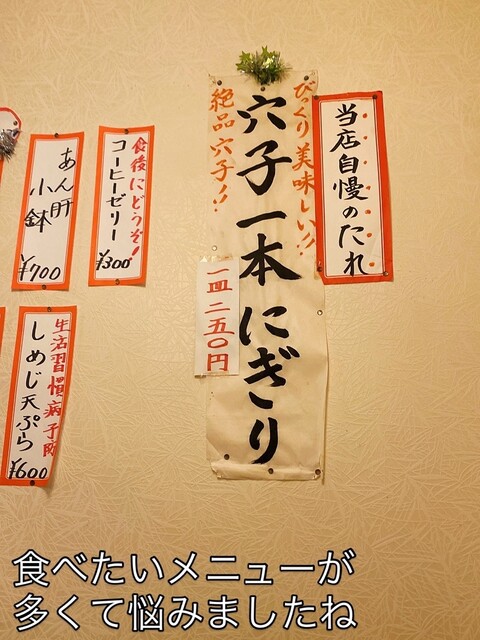 当店自慢のたれ
びっくり美味しい!!
穴子一本にぎり
絶品穴子!!
一皿二五〇円
食後にどうぞ!
コーヒーゼリー
¥300
あん肝
小鉢
¥700
生活習慣病予防
しめじ天ぷら
¥600
食べたいメニューが
多くて悩みましたね